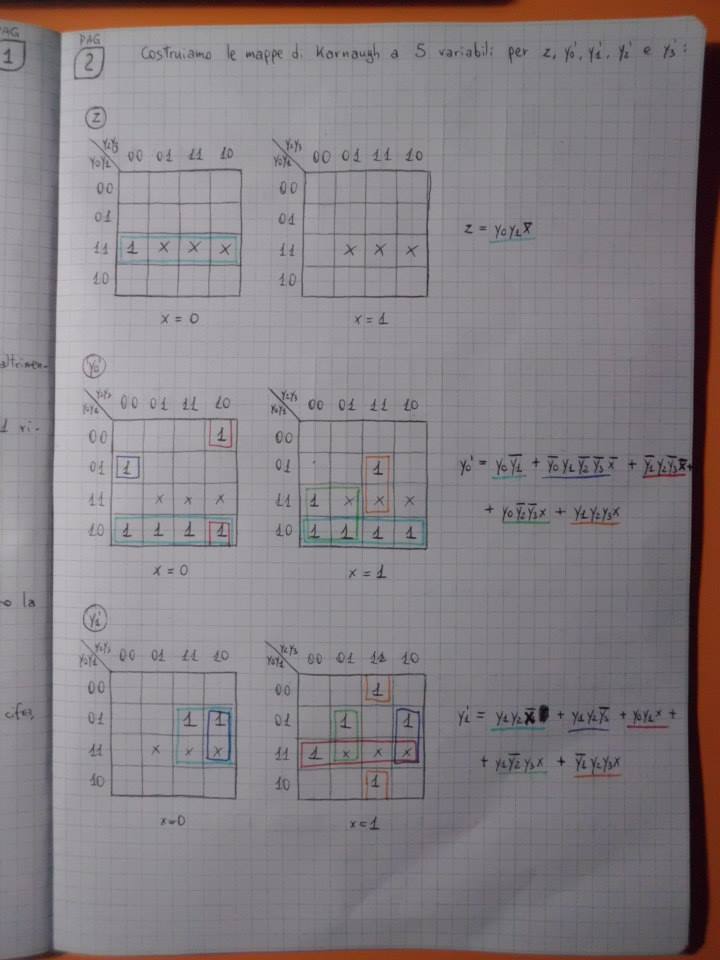 PAG
1
PAG
2
Costruiamo le mappe di Karnaugh a 5 variabili per z, y₀', y₁', y₂' e y₃':
z
y₂y₃
y₀y₁ 00 01 11 10
00
01
11 1 x x x
10
x = 0
y₂y₃
y₀y₁ 00 01 11 10
00
01
11 x x x
10
x = 1
z = y₀y₁x̅
y₀'
y₂y₃
y₀y₁ 00 01 11 10
00 1
01 1
11 x x x
10 1 1 1 1
x = 0
y₂y₃
y₀y₁ 00 01 11 10
00
01 1
11 1 x x x
10 1 1 1 1
x = 1
y₀' = y₀y̅₁ + y̅₀y₁y̅₂y̅₃x̅ + y̅₁y₂y̅₃x̅ +
+ y₀y̅₂y̅₃x + y₁y₂y₃x
y₁'
y₂y₃
y₀y₁ 00 01 11 10
00
01 1 1
11 x x x
10
x=0
y₂y₃
y₀y₁ 00 01 11 10
00 1
01 1 1
11 1 x x x
10 1
x=1
y₁' = y₁y₂x̅ + y₁y₂y̅₃ + y₀y₁x +
+ y₁y̅₂y₃x + y̅₁y₂y₃x
altrimen-
1 ri-
o la
cifra,